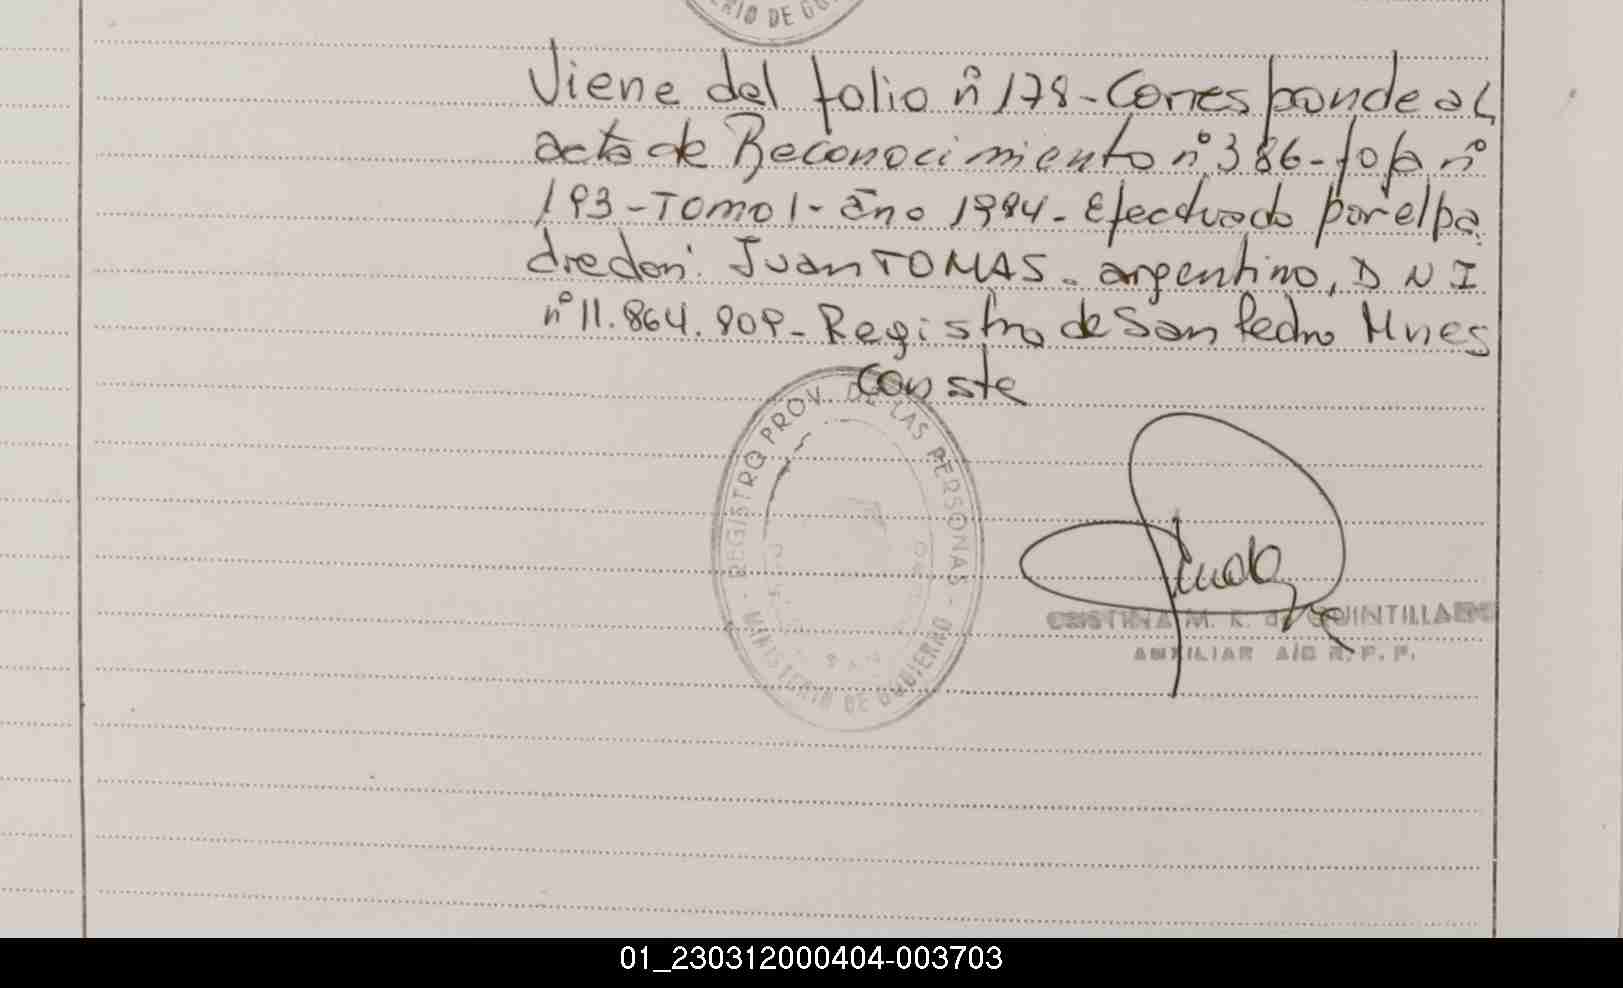 ERIO DE GO
Viene del folio nº 178-Corresponde al
acta de Reconocimiento nº 386-foja nº
193-Tomo I-año 1994-Efectuado por el pa
dre don: Juan TOMAS-argentino, D N I
nº 11.864.909-Registro de San Pedro Mnes
Conste
REGISTRO PROV. DE LAS PERSONAS
MINISTERIO DE GOBIERNO
CRISTINA M. R. de QUINTILLANO
AUXILIAR A/C R. P. P.
01_230312000404-003703